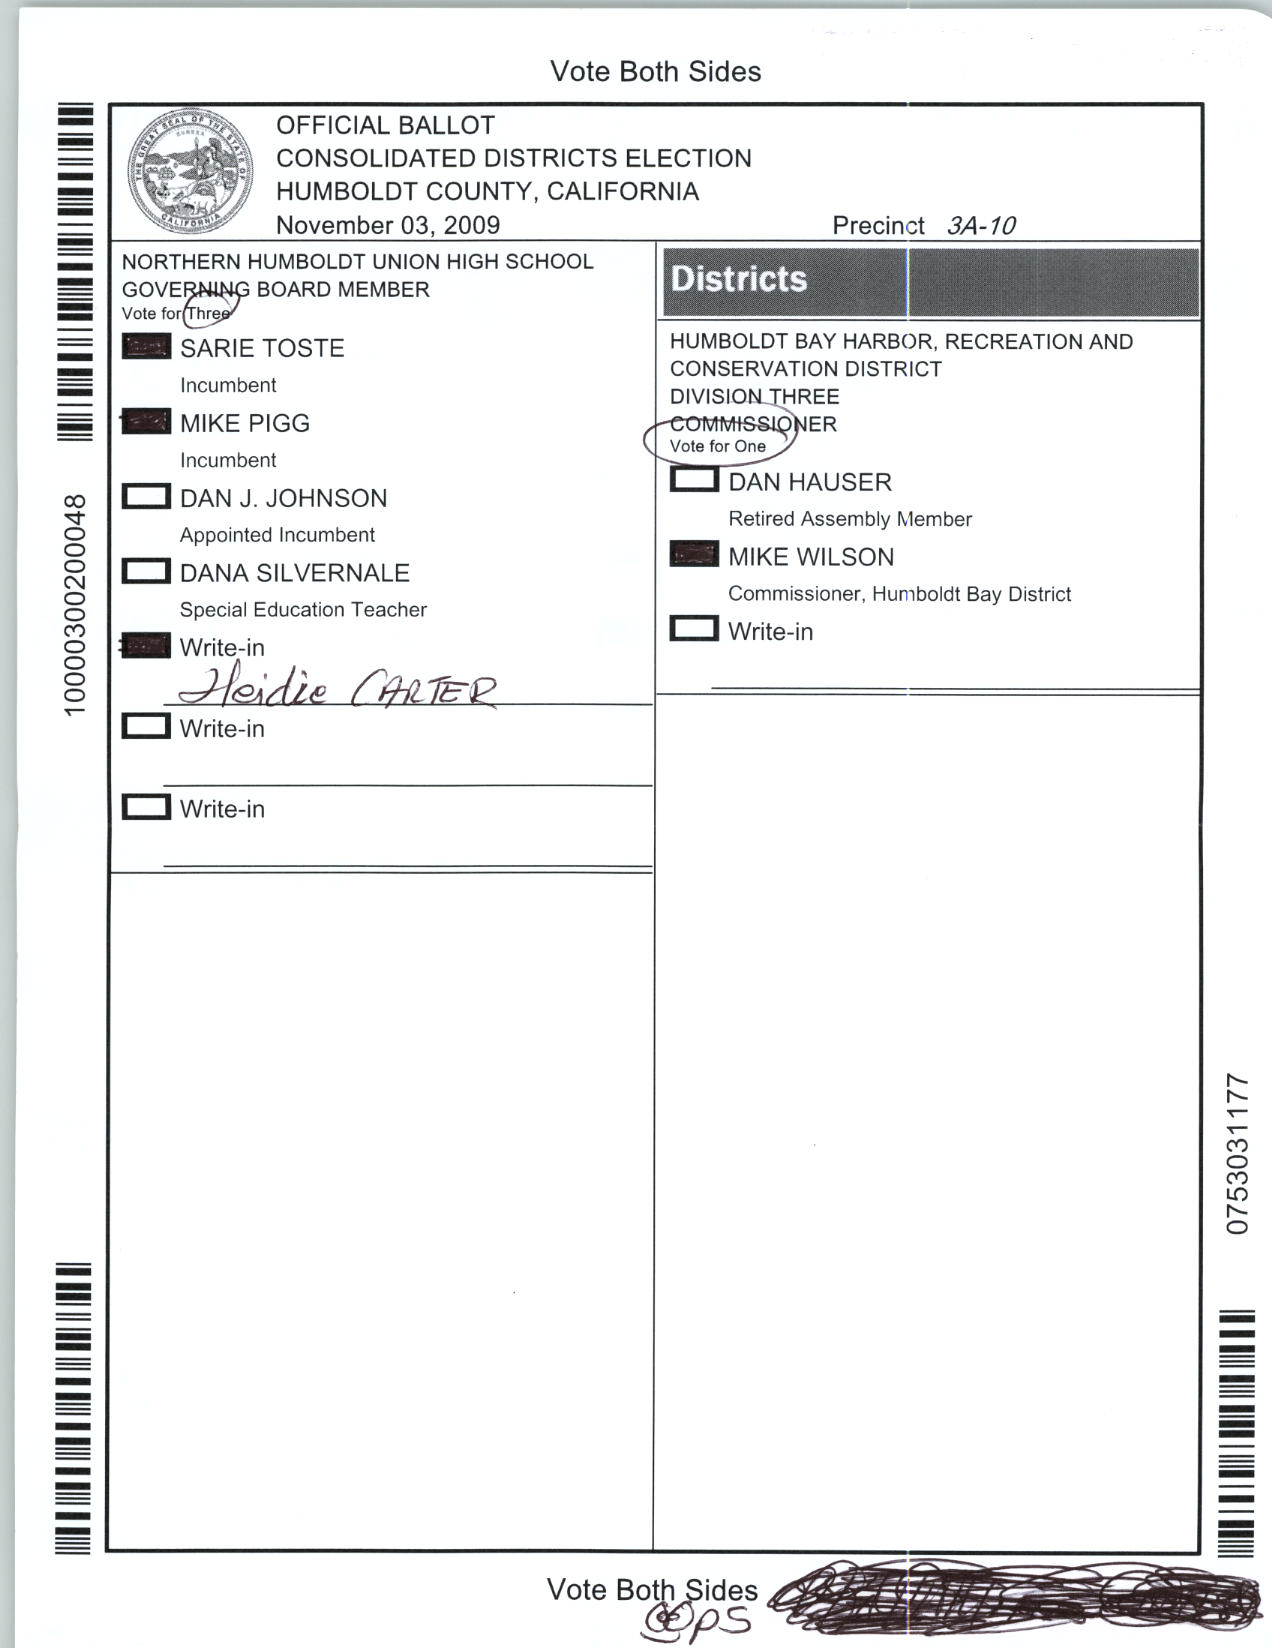 Vote Both Sides
THE GREAT SEAL OF THE STATE OF CALIFORNIA
EUREKA
OFFICIAL BALLOT
CONSOLIDATED DISTRICTS ELECTION
HUMBOLDT COUNTY, CALIFORNIA
November 03, 2009
Precinct 3A-10
NORTHERN HUMBOLDT UNION HIGH SCHOOL
GOVERNING BOARD MEMBER
Vote for Three
SARIE TOSTE
Incumbent
MIKE PIGG
Incumbent
DAN J. JOHNSON
Appointed Incumbent
DANA SILVERNALE
Special Education Teacher
Write-in
Heidie CARTER
Write-in
Write-in
Districts
HUMBOLDT BAY HARBOR, RECREATION AND
CONSERVATION DISTRICT
DIVISION THREE
COMMISSIONER
Vote for One
DAN HAUSER
Retired Assembly Member
MIKE WILSON
Commissioner, Humboldt Bay District
Write-in
10000300200048
0753031177
Vote Both Sides
OOPS